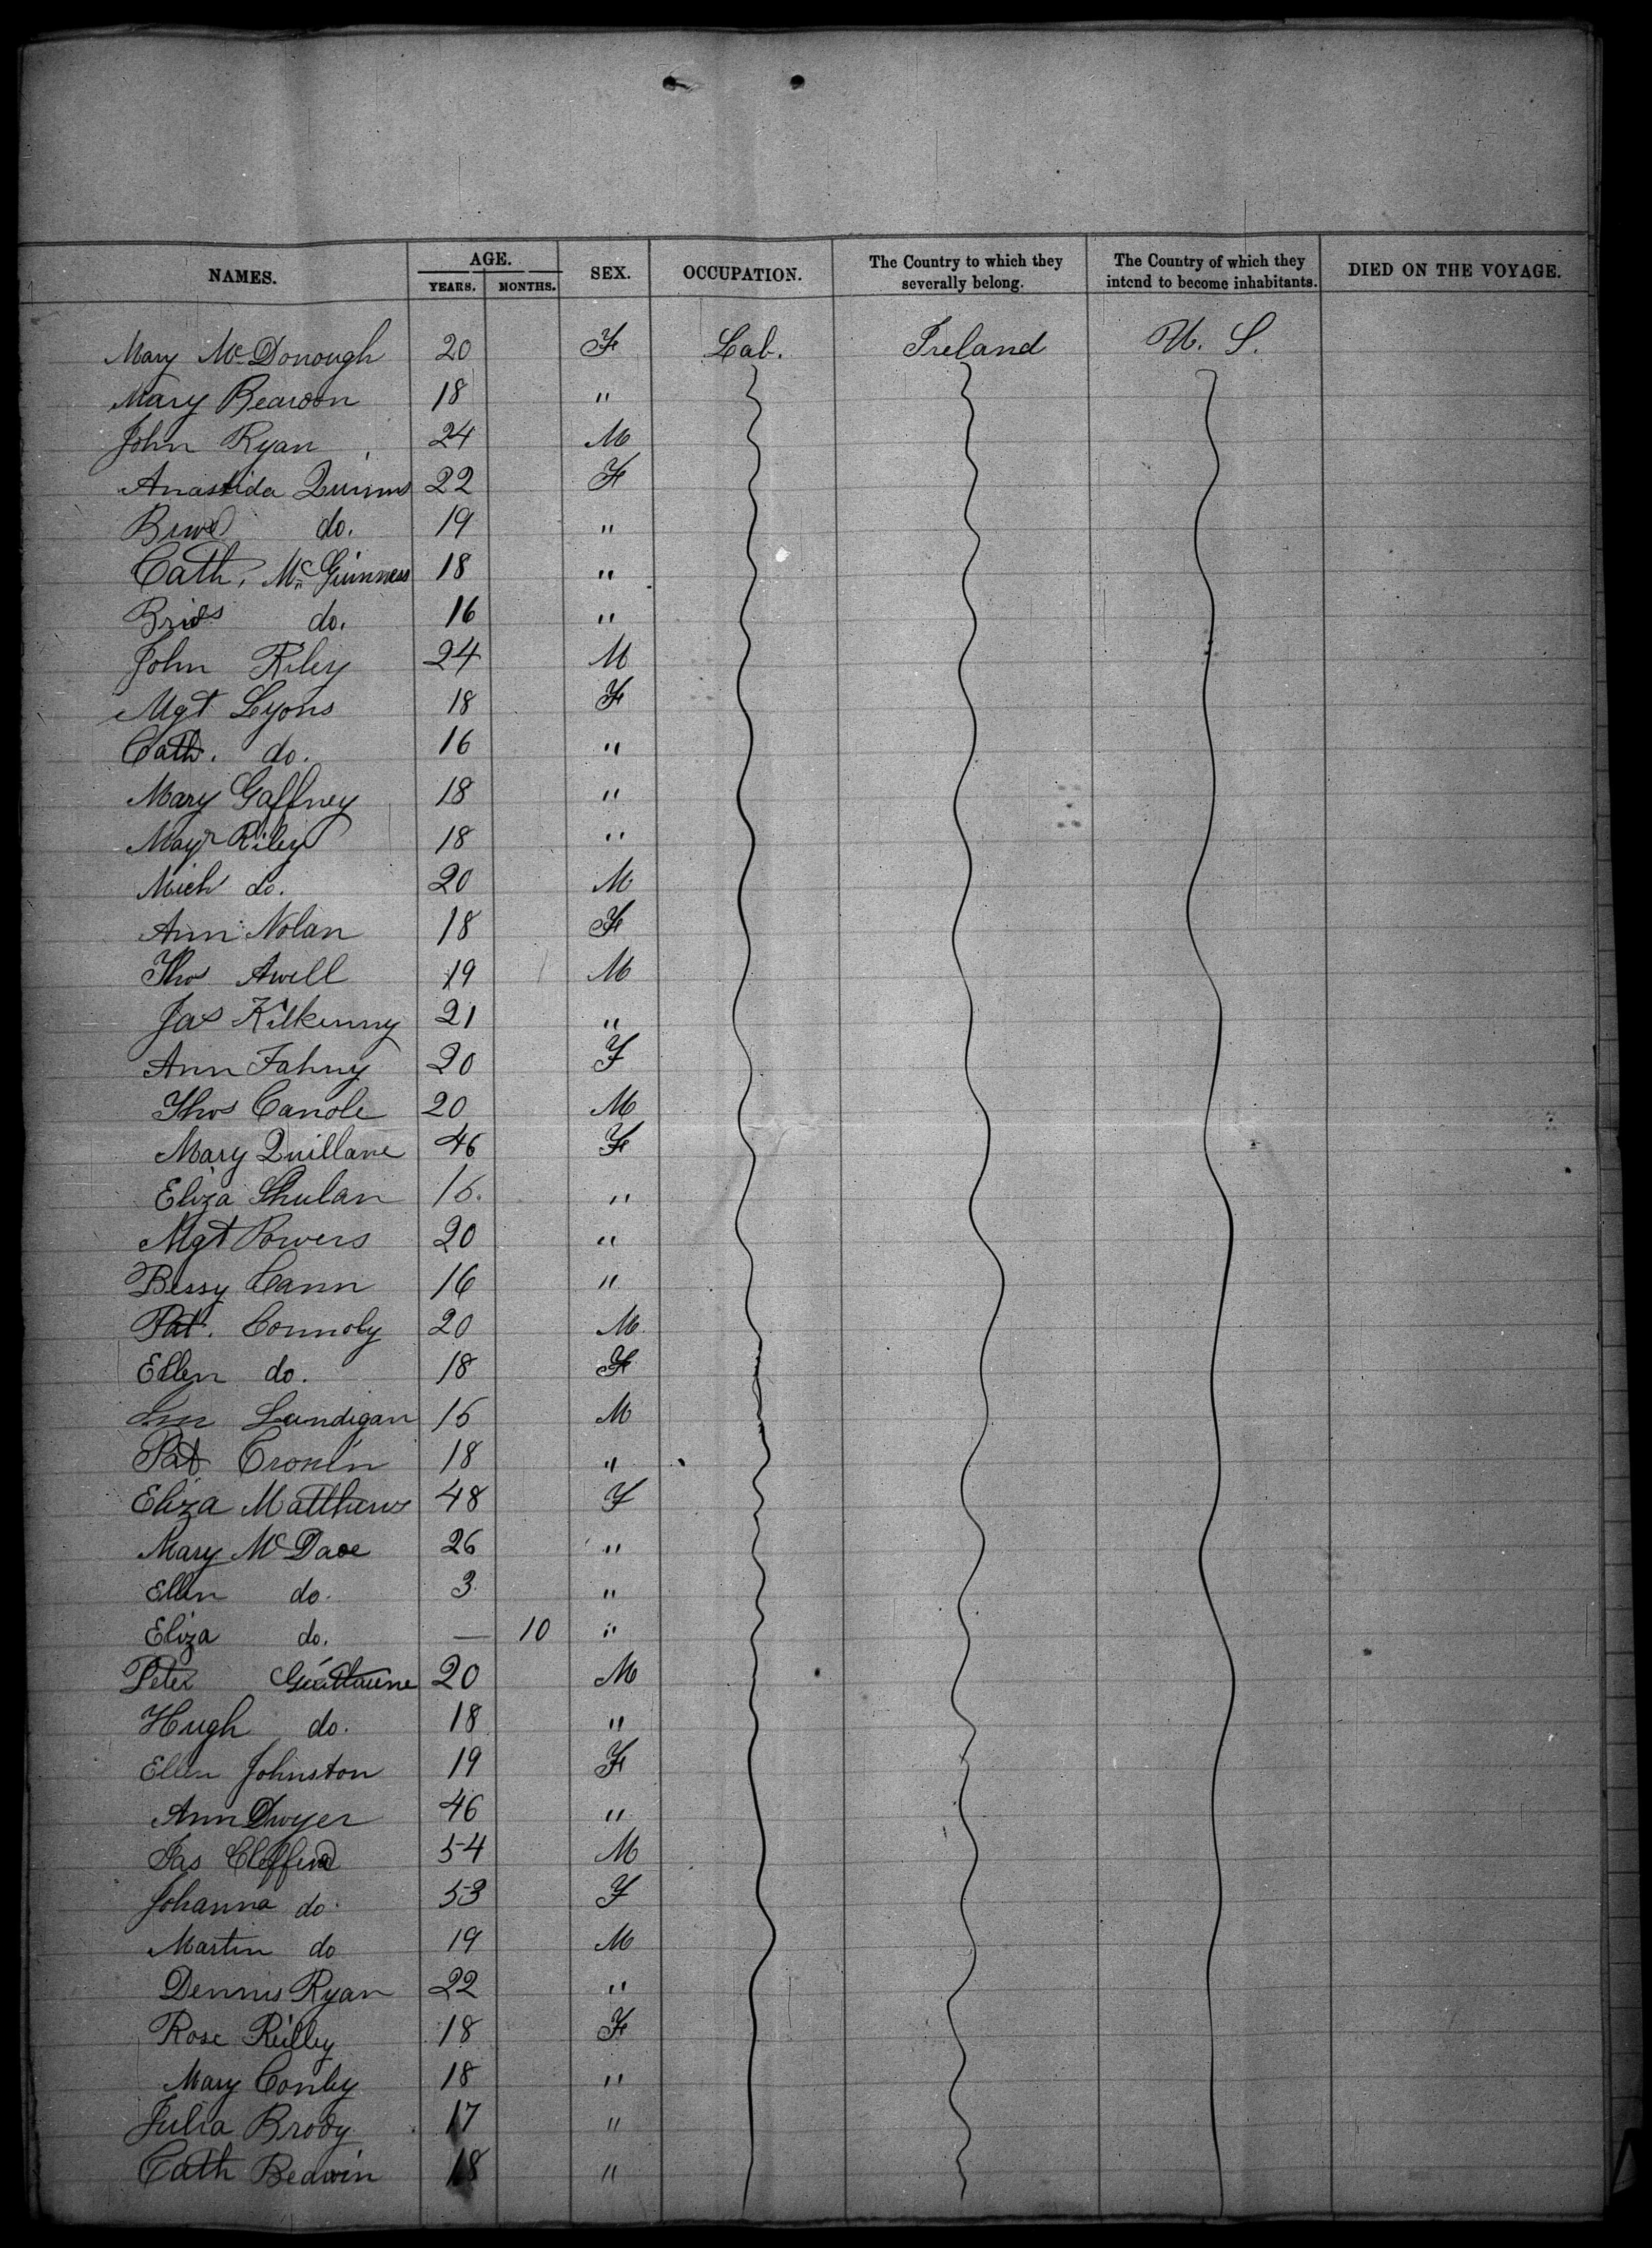 NAMES. AGE. YEARS. MONTHS. SEX. OCCUPATION. The Country to which they severally belong. The Country of which they intend to become inhabitants. DIED ON THE VOYAGE.
Mary McDonough 20 F Lab. Ireland U. S.
Mary Reardon 18 "
John Ryan 24 M
Anastida Quinn 22 F
do. 19 "
Cath. McGuinness 18 "
Brid do. 16 "
John Riley 24 M
Mgt Lyons 18 F
Cath. do. 16 "
Mary Gaffney 18 "
Mayr Riley 18 "
Mich do. 20 M
Ann Nolan 18 F
Thos Awell 19 M
Jas Kilkenny 21 "
Ann Fahny 20 F
Thos Canole 20 M
Mary Quillane 46 F
Eliza 16. "
Mgt Powers 20 "
Bessy Cann 16 "
Pat. Connoly 20 M
Ellen do. 18 F
Landigan 16 M
Pat Cronin 18 "
Eliza Matthews 48 F
Mary McDade 26 "
Ellen do. 3 "
Eliza do. — 10 "
Peter 20 M
Hugh do. 18 "
Ellen Johnston 19 F
Ann Dwyer 46 "
Jas 54 M
Johanna do. 53 F
Martin do 19 M
Dennis Ryan 22 "
Rose Reilley 18 F
Mary Conley 18 "
Julia Brody 17 "
Cath Bedwin 18 "